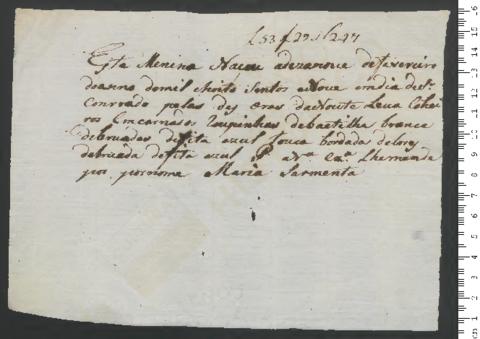 L 53 f 29 N 247
Esta Menina Naçeu adezanove defevereiro
doanno demil e oito Sentos e Nove emdia de S.
Conrrado pelas des oras daNoute Leva Coei
ros Emcarnado Roupinhas debaetilha branca
debruadas defita azul touca bordada de
debruada defita azul P. a V.ª Lhemande
por pornome Maria Sarmenta